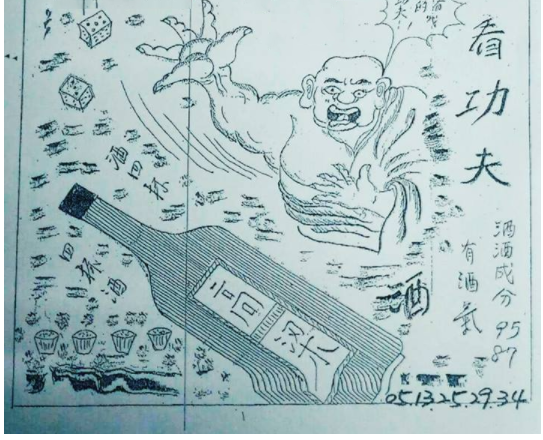 看功夫
的
功夫!
酒四杯
四杯酒
高粱
酒
有酒氣
酒酒成分 95
87
05.13.25.29.34